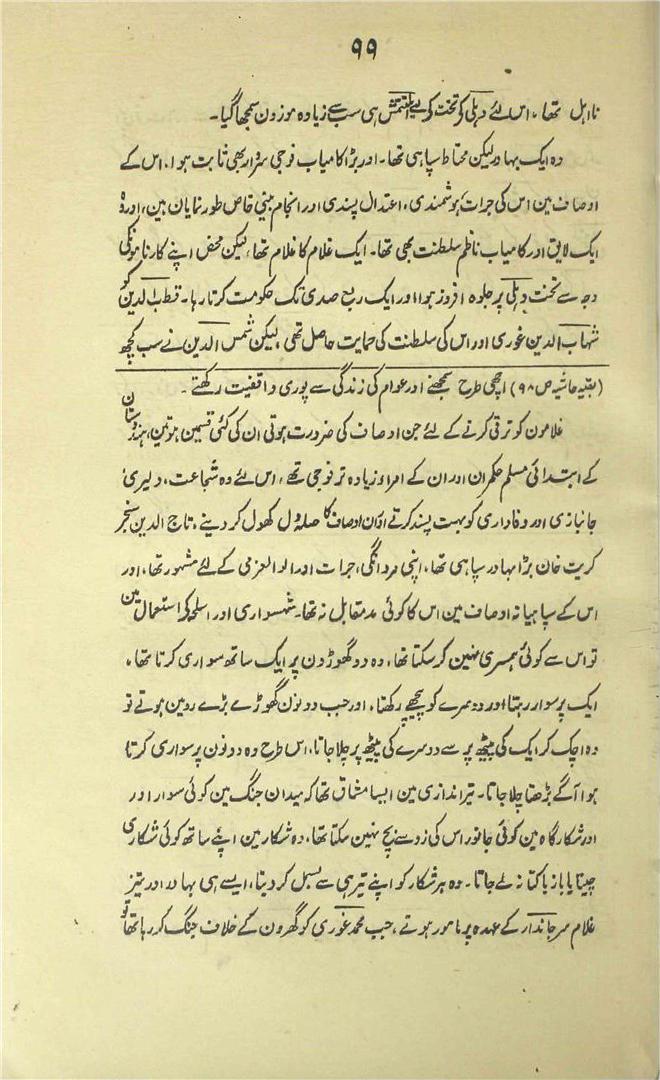 ۹۹
نااہل تھا، اس لئے دہلی کو تخت کے لیے التمش ہی سب سے زیادہ موزون سمجھا گیا۔
وہ ایک بہادر لیکن محتاط سپاہی تھا۔ اور بڑا کامیاب فوجی سردار بھی ثابت ہوا، اس کے
اوصاف مین اس کی جرات، ہوشمندی، اعتدال پسندی اور انجام بینی خاص طور نمایان ہین، اور وہ
ایک لایق اور کامیاب ناظم سلطنت بھی تھا۔ ایک غلام کا غلام تھا، لیکن محض اپنے کارنامونکی
وجہ سے تخت دہلی پر جلوہ افروز ہوا اور ایک ربع صدی تک حکومت کرتا رہا۔ قطب الدین کو
شہاب الدین غوری اور اس کی سلطنت کی حمایت حاصل تھی، لیکن شمس الدین نے سب کچھ
(بقیہ حاشیہ ص ۹۸) اچھی طرح سمجھنے اور عوام کی زندگی سے پوری واقفیت رکھتے۔
غلامون کو ترقی کرنے کے لئے جن اوصاف کی ضرورت ہوتی ان کی کئی قسمین ہوتین، ہندوستان
کے ابتدائی مسلم حکمران اور ان کے امراء زیادہ تر فوجی تھے، اس لئے وہ شجاعت، دلیری
جانبازی اور وفاداری کو بہت پسند کرتے اور ان اوصاف کا صلہ دل کھول کر دیتے، تاج الدین سنجر
کریت خان بڑا بہادر سپاہی تھا، اپنی مردانگی، جرات اور الوالعزمی کے لئے مشہور تھا، اور
اس کے سپاہیانہ اوصاف مین اس کا کوئی مدمقابل نہ تھا۔ شہسواری اور اسلحہ کے استعمال مین
تو اس سے کوئی ہمسری نہین کرسکتا تھا، وہ دو گھوڑون پر ایک ساتھ سواری کرتا تھا،
ایک پر سوار رہتا اور دوسرے کو پیچھے رکھتا، اور جب دونون گھوڑے بڑے رو مین ہوتے تو
وہ اچک کر ایک کی پیٹھ پر سے دوسرے کی پیٹھ پر چلا جاتا، اس طرح وہ دونون پر سواری کرتا
ہوا آگے بڑھتا چلا جاتا۔ تیر اندازی مین ایسا مشاق تھا کہ میدان جنگ مین کوئی سوار اور
اور شکارگاہ مین کوئی جانور اس کی زد سے بچ نہین سکتا تھا، وہ شکار مین اپنے ساتھ کوئی شکاری
چیتا یا باز یا کتا نہ لے جاتا۔ وہ ہر شکار کو اپنے تیر ہی سے بسمل کر دیتا، ایسے ہی بہادر اور تیز
غلام سرجاندار کے عہدہ پر مامور ہوتے، جب محمد غوری کوگھرون کے خلاف جنگ کر رہا تھا تو